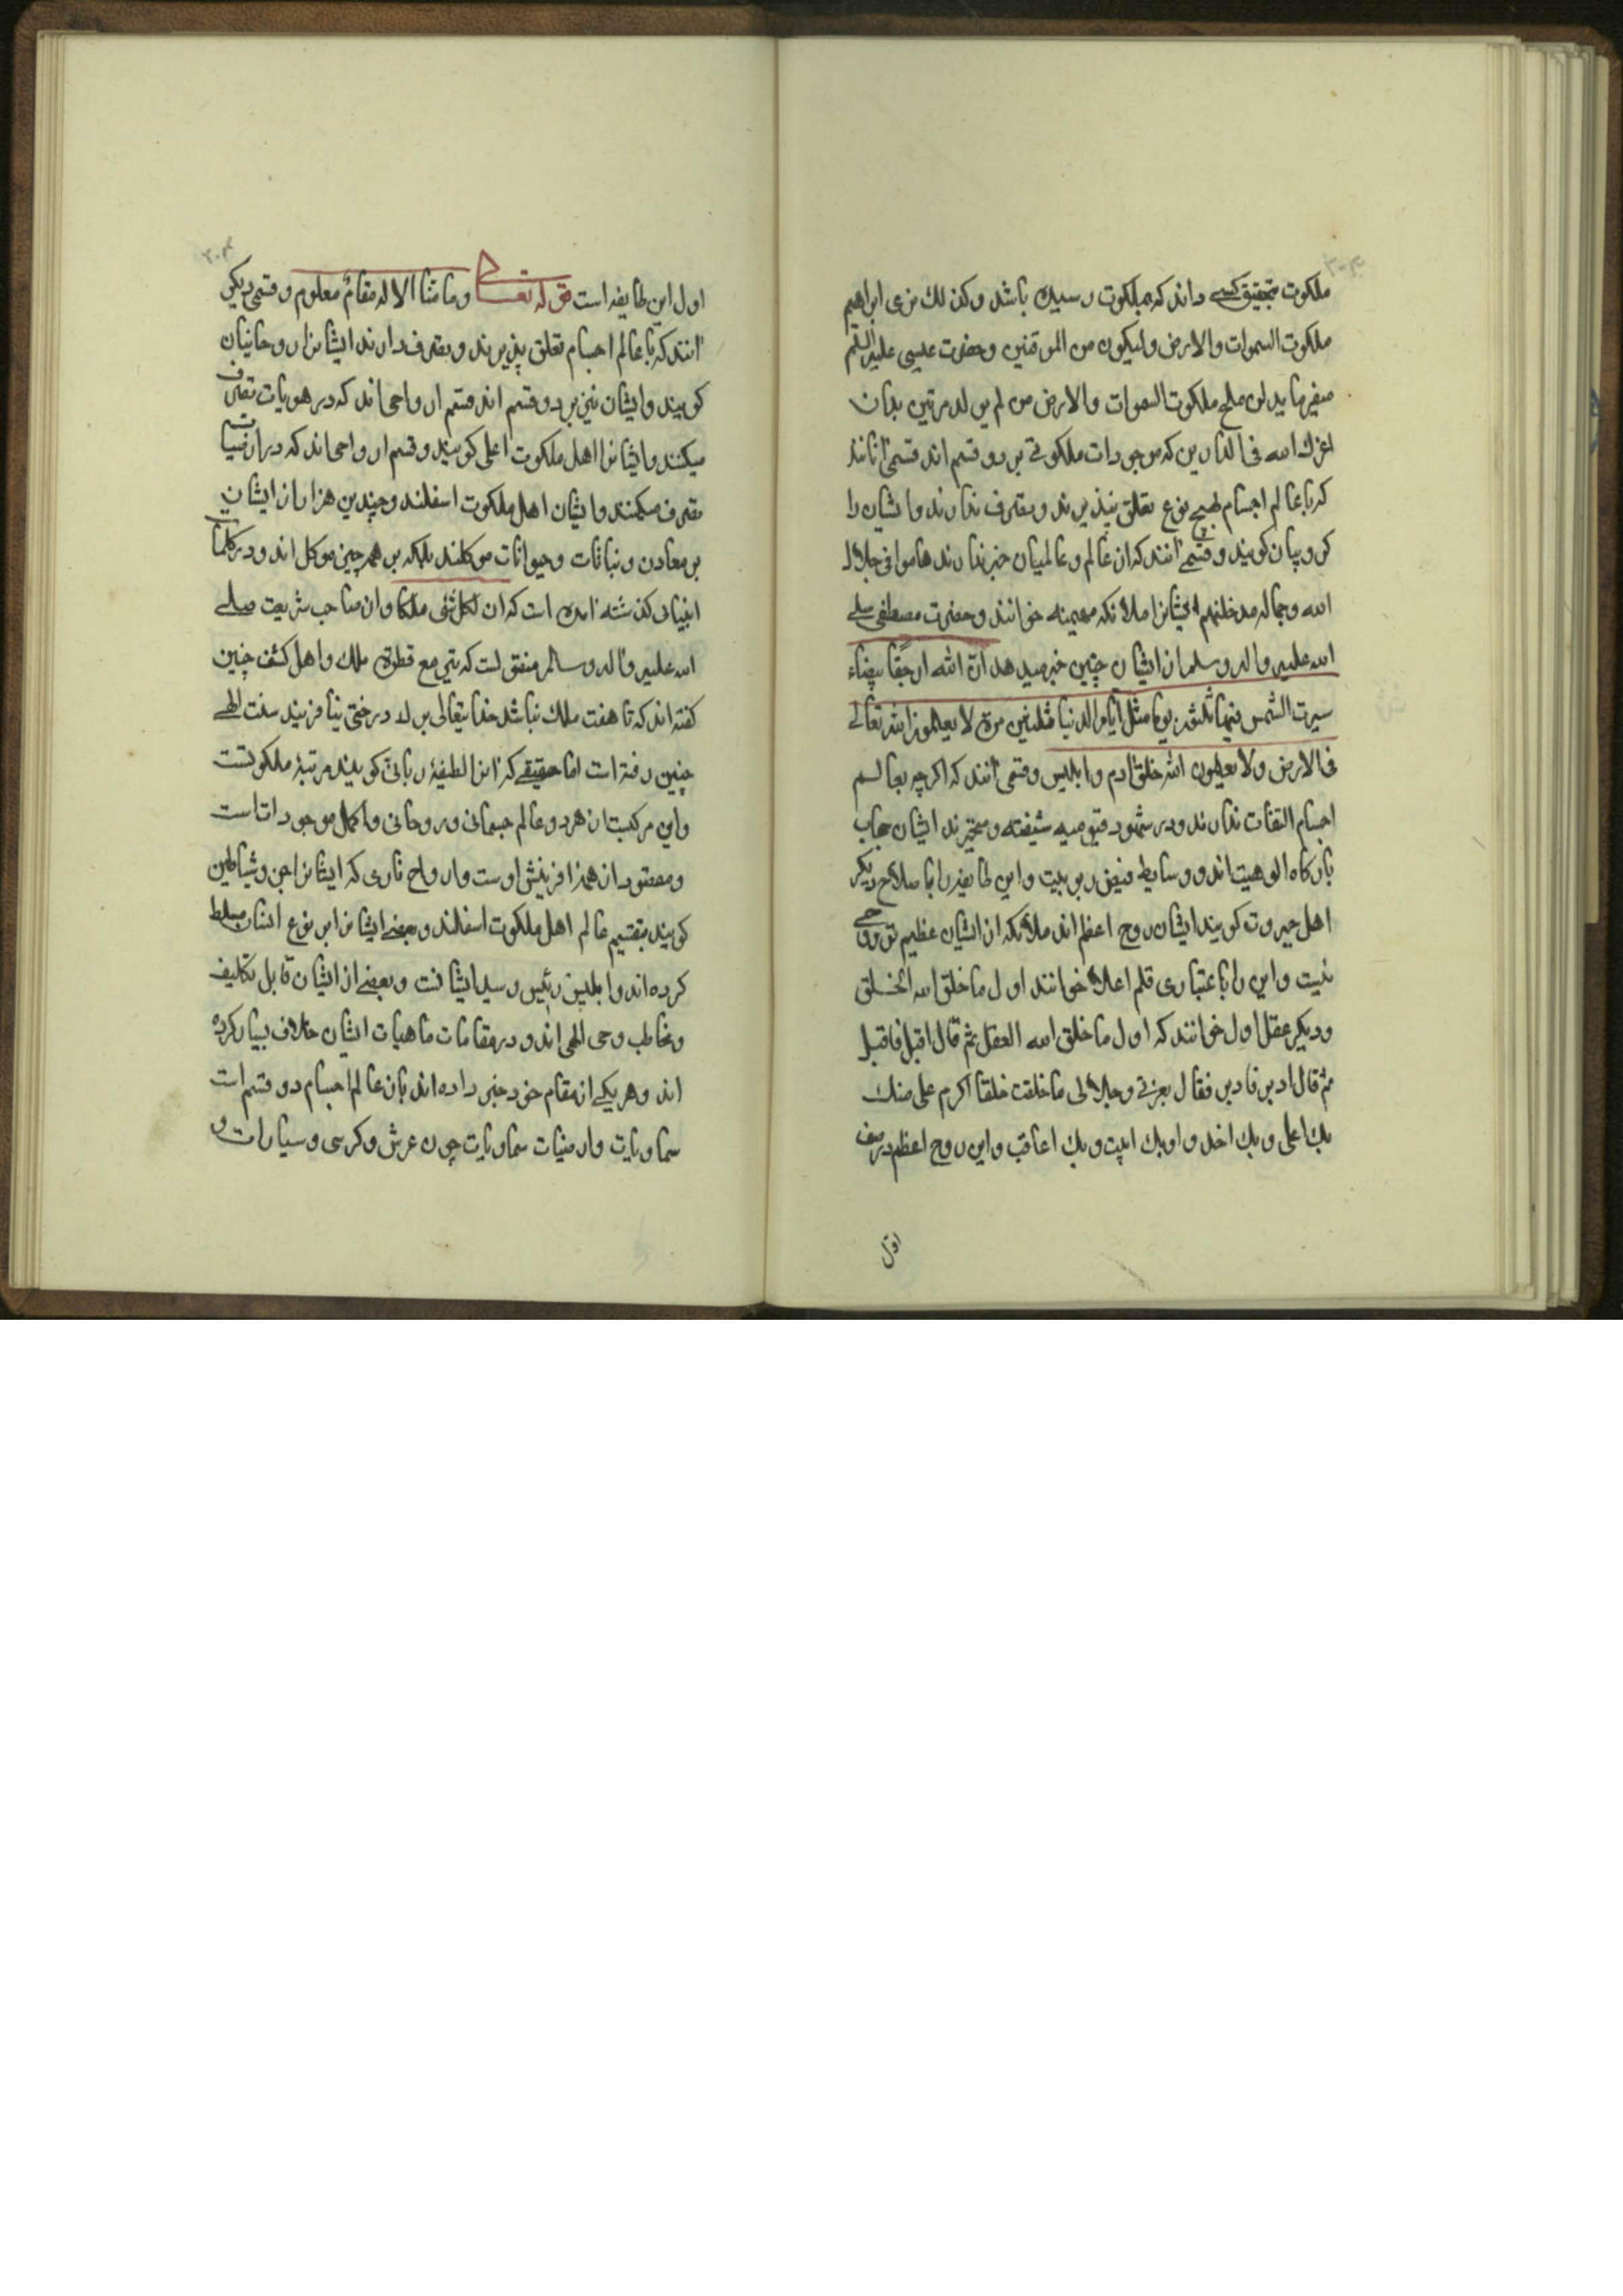 ملکوت بتحقیق کسی داند که بملکوت رسیده باشد وکذلك نری ابراهیم
ملکوت السموات والارض ولیکون من الموقنین وحضرت عیسی علیه السلم
میفرماید لن یلج ملکوت السموات والارض من لم یولد مرتین بدان
اعزك الله فی الدارین که موجودات ملکوتی بر دو قسم اند قسمی آنانند
که باعالم اجسام بهیچ نوع تعلق نپذیرند وتصرف ندارند وایشان را
کروبیان کویند وقسمی آنند که از عالم وعالمیان خبر ندارند هاموا فی جلال
الله وجماله مذ خلقهم ایشانرا ملائکه مهیمنه خوانند وحضرت مصطفی صلی
الله علیه واله وسلم از ایشان چنین خبر میدهد ان الله ارضا بیضاء
سیرت الشمس فیها ثلثون یوما مثل ایام الدنیا ثلثین مرة لا یعلمون ان الله تعالی
فی الارض ولا یعلمون ان الله خلق ادم وابلیس وقسمی آنند که اکرچه بعالم
اجسام التفات ندارند ودر شهود قیومیه شیفته ومتحیرند ایشان حجاب
بارکاه الوهیت اند ووسایط فیض ربوبیت واین طایفه را باصلاح دیکر
اهل جبروت کویند ایشان روح اعظم اند ملائکه از ایشان عظیم تر روحی
نیست واین را باعتباری قلم اعلا خوانند اول ما خلق الله الخلق
ودیکر عقل اول خوانند که اول ما خلق الله العقل ثم قال اقبل فاقبل
ثم قال ادبر فادبر فقال بعزتی وجلالی ما خلقت خلقا اکرم علی منك
بك اعطی وبك اخذ وبك اثیب وبك اعاقب واین روح اعظم در صف
اول
اول این طایفه است قوله تعالی وما منا الا له مقام معلوم وقسمی دیکر
آنند که باعالم اجسام تعلق پذیرند وتصرف دارند ایشانرا روحانیان
کویند وایشان نیز بر دو قسم اند قسم ارواحی اند که در سماویات تصرف
میکنند وایشانرا اهل ملکوت اعلی کویند وقسم ارواحی اند که در ارضیات
تصرف میکنند وایشان اهل ملکوت اسفلند وچندین هزار از ایشان
بر معادن ونباتات وحیوانات موکلند بلکه بر همه چیز موکل اند ودر کلمات
انبیای کذشته آمده است که ان لکل شئ ملکا واز صاحب شریعت صلی
الله علیه واله وسلم منقولست که ینزل مع قطرة ملك واهل کشف چنین
کفته اند که تا هفت ملك نباشد خدایتعالی برك درختی نیافریند سنت الهی
چنین رفته است اما حقیقتی که آنرا لطیفهٔ ربانی کویند مرتبهٔ ملکوتست
واین مرکبست از هردو عالم جسمانی وروحانی واکمل موجوداتست
ومقصود از همه آفرینش اوست وارواح ناری که ایشانرا جن وشیاطین
کویند بتقسیم عالم اهل ملکوت اسفلند وبعضی ایشانرا بر نوع انسان مسلط
کرده اند وابلیس رئیس وسید ایشانست وبعضی از ایشان قابل تکلیف
ومخاطب وحی الهی اند ودر مقامات ماهیات ایشان خلاف بسیار کرده
اند وهریکی از مقام خود خبر داده اند بان عالم اجسام دو قسم است
سماویات وارضیات سماویات چون عرش وکرسی وسیارات و